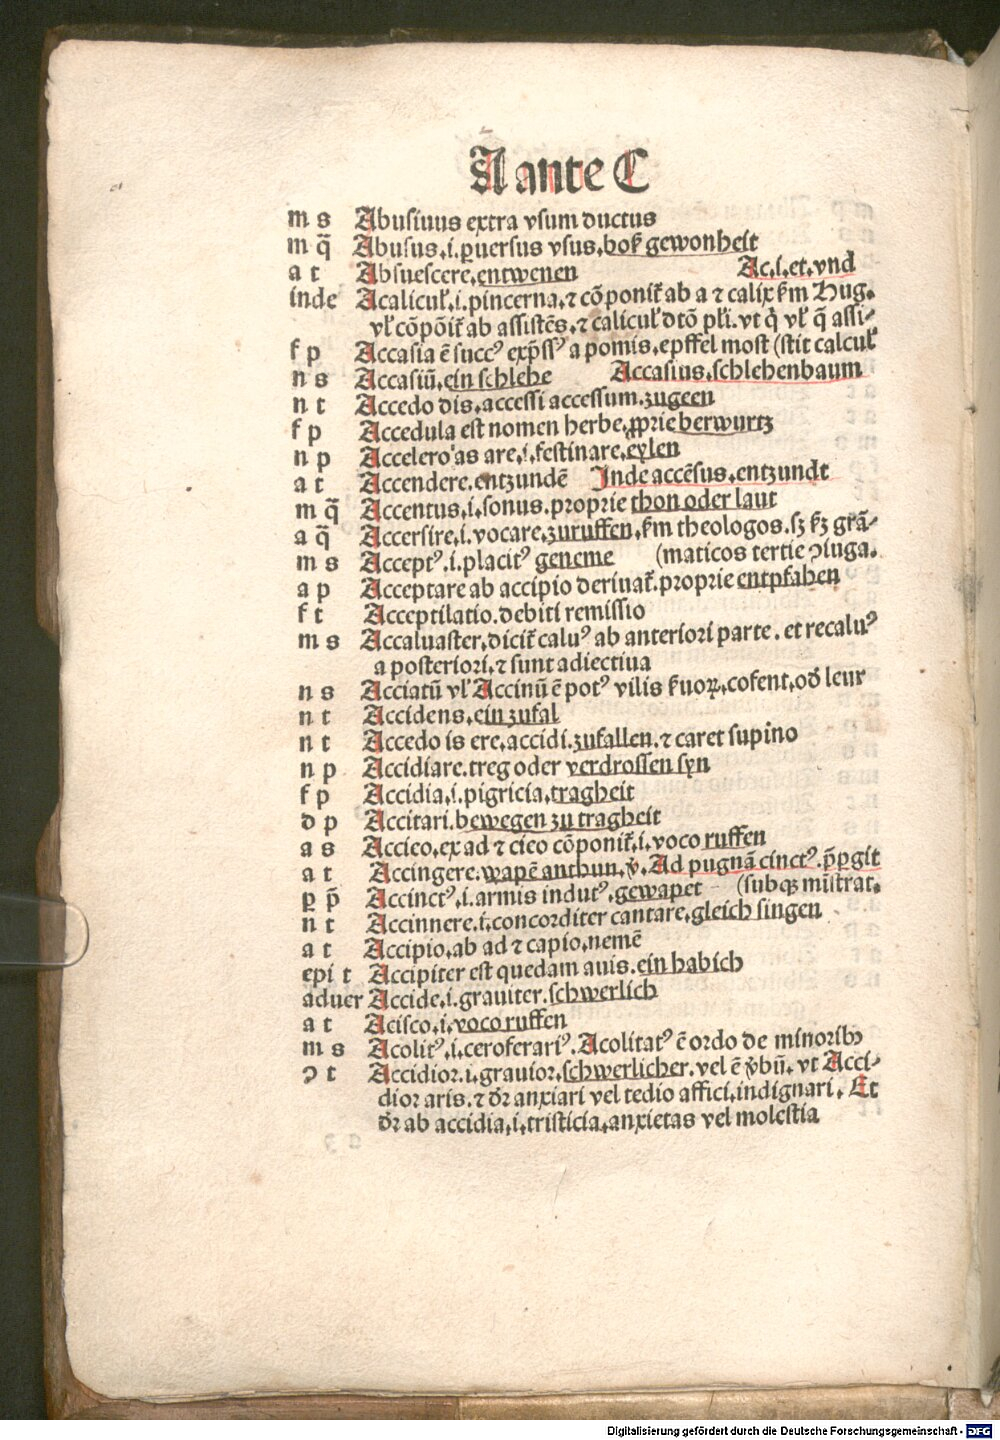 A ante C
m s Abusiuus extra vsum ductus
m q̄ Abusus.i.ꝑuersus vsus.boß gewonheit
a t Absuescere.entwenen Ac.i.et.vnd
inde Acalicul᷑.i.pincerna.⁊ cōponit᷑ ab a ⁊ calix ẜm Hug.
vl᷑ cōpōit᷑ ab assistēs.⁊ calicul᷑ dtō pl᷑i.vt q̄ vl᷑ q̄ assi⸗
f p Accasia ē succꝰ exp̄ssꝰ a pomis.epffel most (stit calcul᷑
n s Accasiū.ein schlehe Accasius.schlehenbaum
n t Accedo dis.accessi accessum.zugeen
f p Accedula est nomen herbe.ꝓprie berwurtz
n p Accelero as are.i.festinare.eylen
a t Accendere.entzundē Inde accēsus.entzundt
m q̄ Accentus.i.sonus.proprie thon oder laut
a q̄ Accersire.i.vocare.zuruffen.ẜm theologos.sꝫ ẜꝫ grā⸗
m s Acceptꝰ.i.placitꝰ geneme (maticos tertie ↄiuga.
a p Acceptare ab accipio deriuat᷑.proprie entpfahen
f t Acceptilatio.debiti remissio
m s Accaluaster.dicit᷑ caluꝰ ab anteriori parte.et recaluꝰ
a posteriori.⁊ sunt adiectiua
n s Acciatū vl᷑ Accinū ē potꝰ vilis ẜuoꝝ.cofent.od᷑ leur
n t Accidens.ein zufal
n t Accedo is ere.accidi.zufallen.⁊ caret supino
n p Accidiare.treg oder verdrossen syn
f p Accidia.i.pigricia.tragheit
d p Accitari.bewegen zu tragheit
a s Accieo.ex ad ⁊ cieo cōponit᷑.i.voco ruffen
a t Accingere.wapē anthun.v̄.Ad pugnā cinctꝰ.p̄ꝑgit
ꝑ p̄ Accinctꝰ.i.armis indutꝰ.gewapet (subqꝫ mistrat.
n t Accinnere.i.concorditer cantare.gleich singen
a t Accipio.ab ad ⁊ capio.nemē
epi t Accipiter est quedam auis.ein habich
aduer Accide.i.grauiter.schwerlich
a t Acisco.i.voco ruffen
m s Acolitꝰ.i.ceroferariꝰ.Acolitatꝰ ē ordo de minoribꝫ
ↄ t Accidior.i.grauior.schwerlicher.vel ē v̄bū.vt Acci⸗
dior aris.⁊ dr̄ anxiari vel tedio affici.indignari.Et
dr̄ ab accidia.i.tristicia.anxietas vel molestia
Digitalisierung gefördert durch die Deutsche Forschungsgemeinschaft - DFG